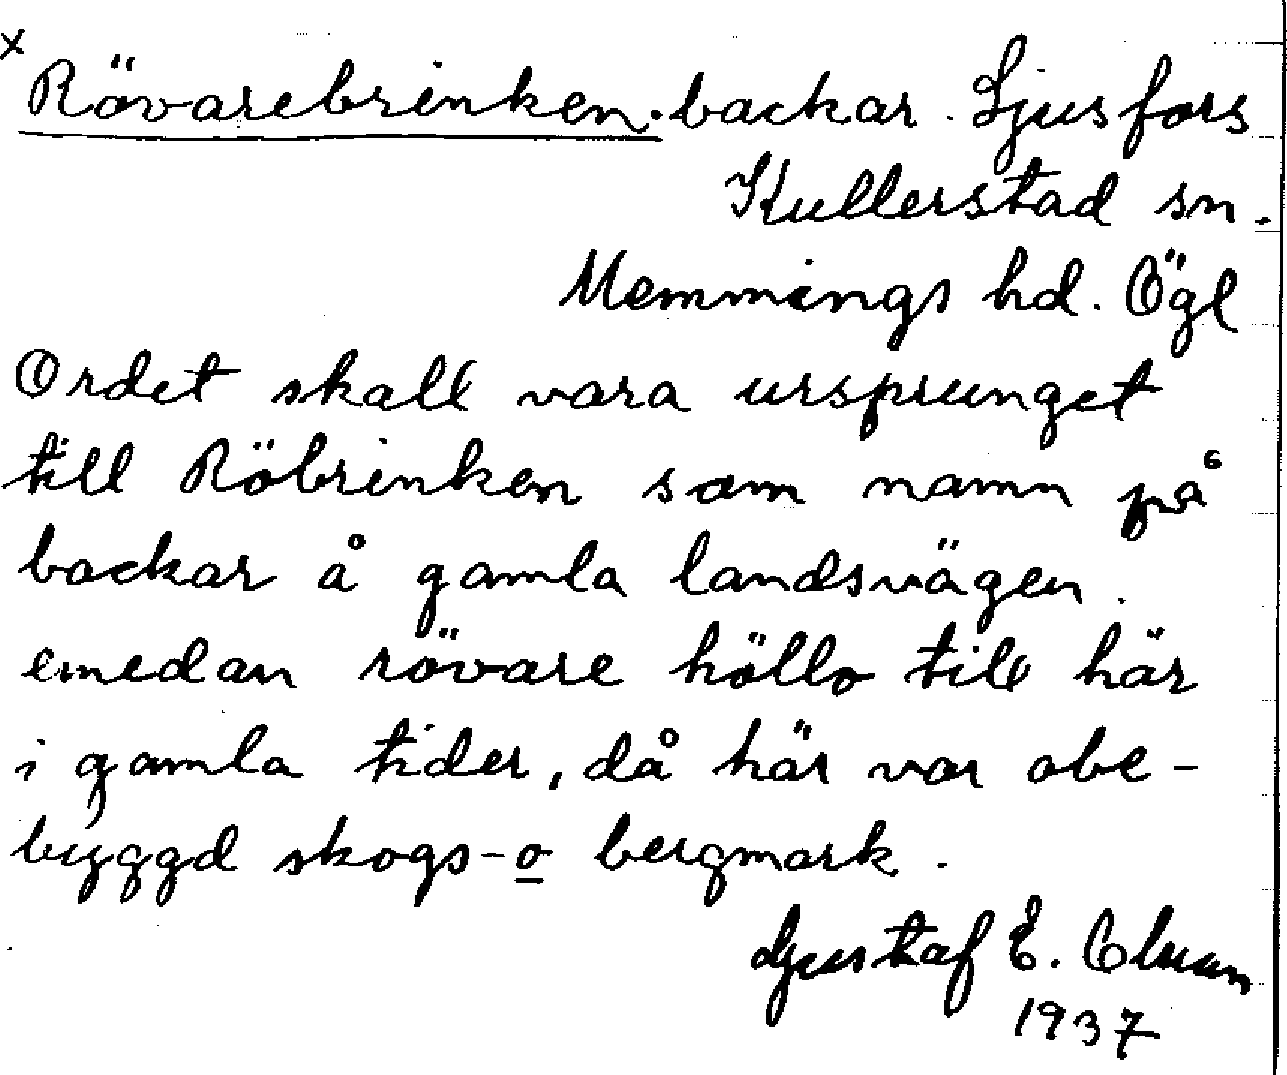 x Rövarebrinken. backar. Ljusfors
Kullerstad sn.
Memmings hd. Ögl
Ordet skall vara ursprunget
till Röbrinken som namn på
backar å gamla landsvägen.
emedan rövare höllo till här
i gamla tider, då här var obe-
byggd skogs- o bergmark.
Gustaf E.
1937